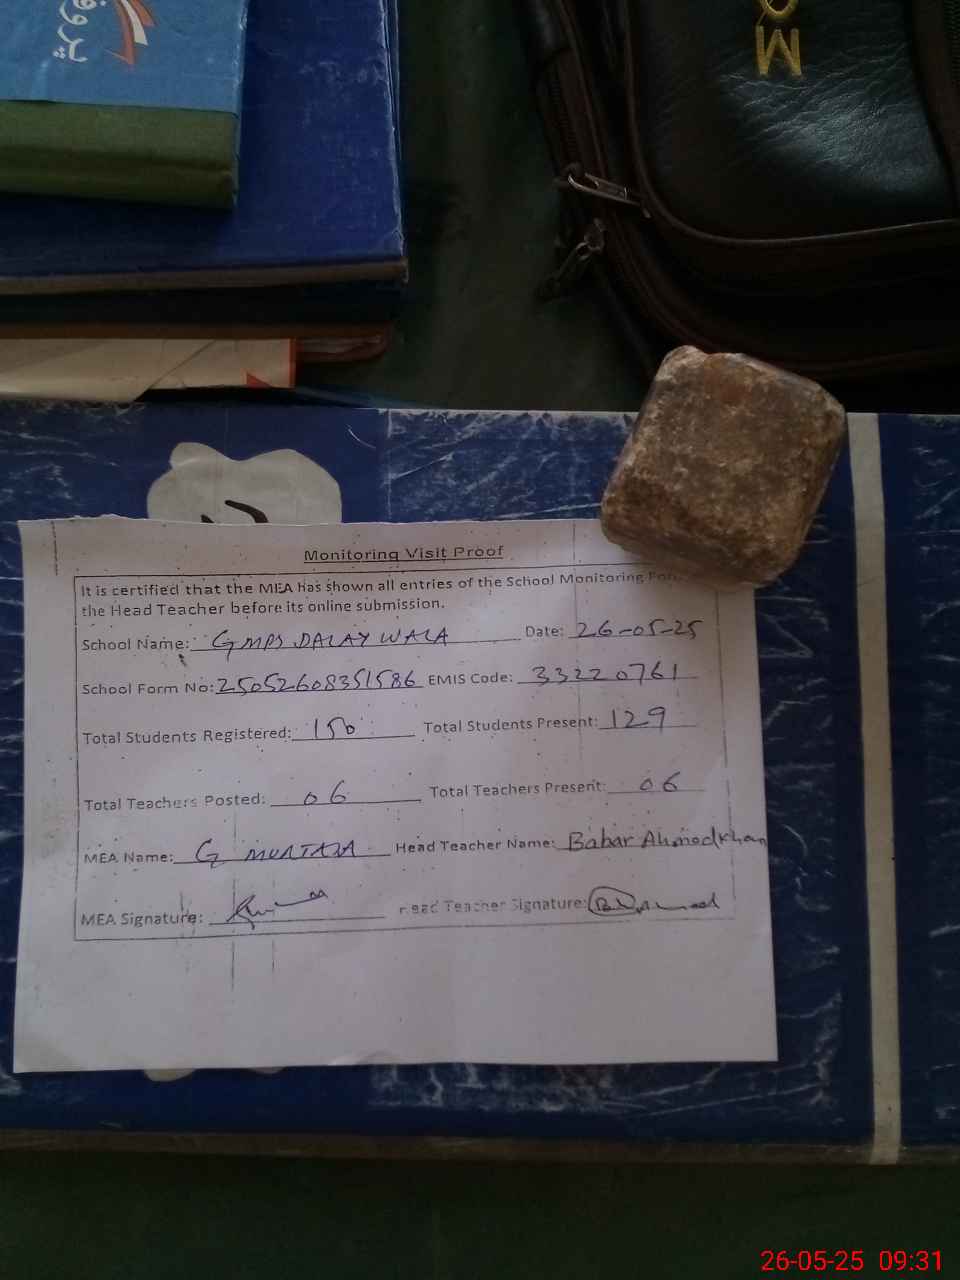 پروف
OM
Monitoring Visit Proof
It is certified that the MEA has shown all entries of the School Monitoring
the Head Teacher before its online submission.
School Name: GMPS DALAY WALA Date: 26-05-25
School Form No: 25052608351586 EMIS Code: 33220761
Total Students Registered: 150 Total Students Present: 129
Total Teachers Posted: 06 Total Teachers Present: 06
MEA Name: G MURTAZA Head Teacher Name: Babar Ahmad khan
MEA Signature: Head Teacher Signature:
26-05-25 09:31